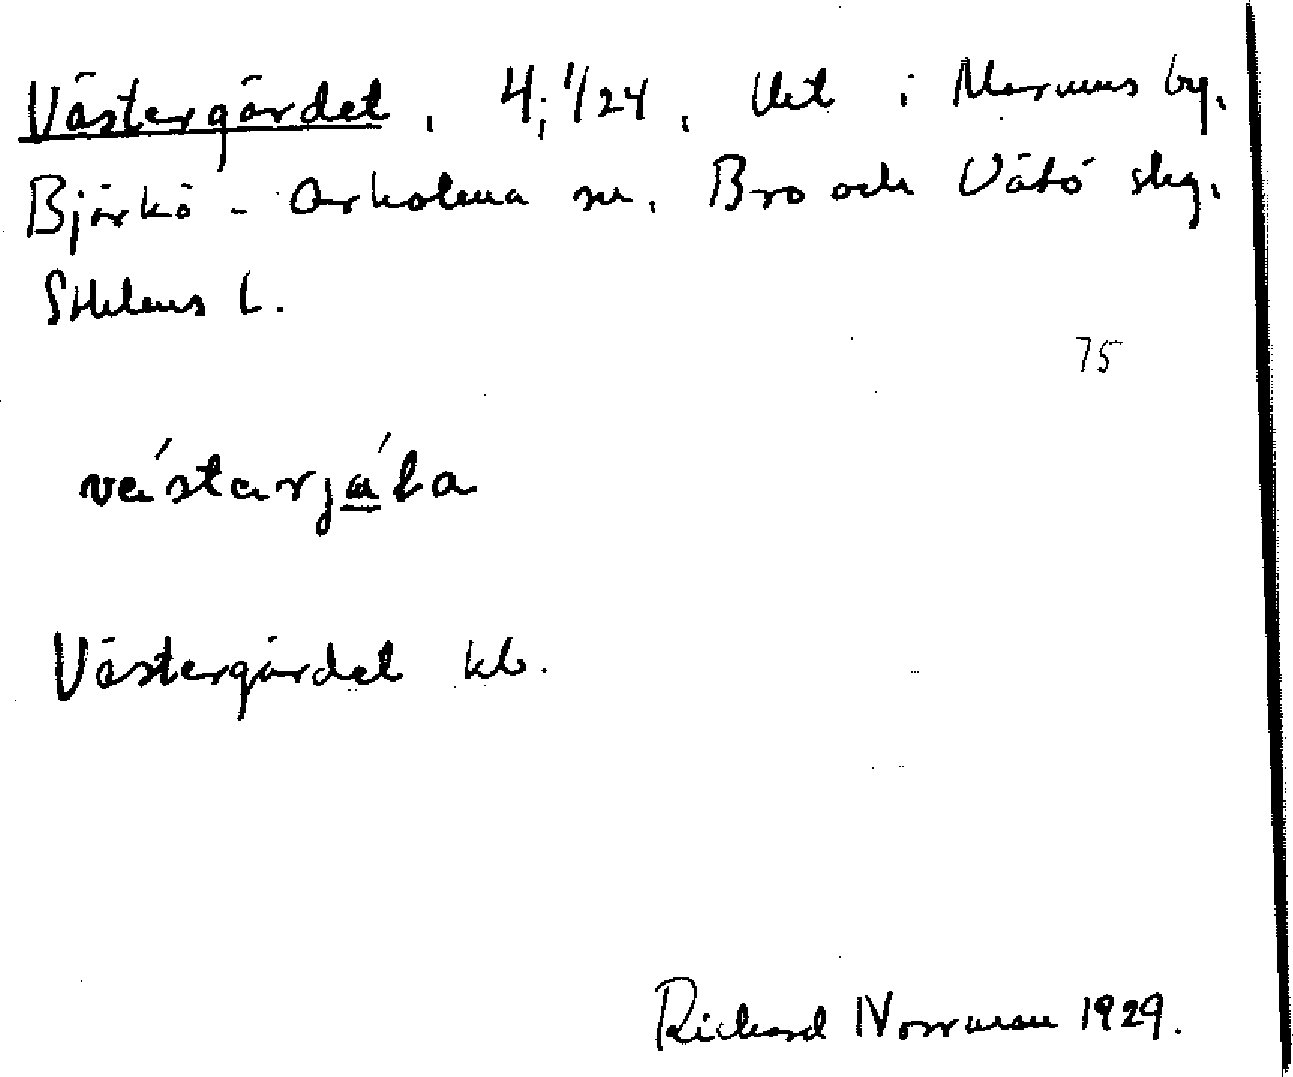 Västergärdet, 4; 1/24, Utt i Marums by,
Björkö-Arholma sn, Bro och Vätö skg,
Sthlms l.
75
västarjäta
Västergärdet kb.
Richard Norrman 1929.